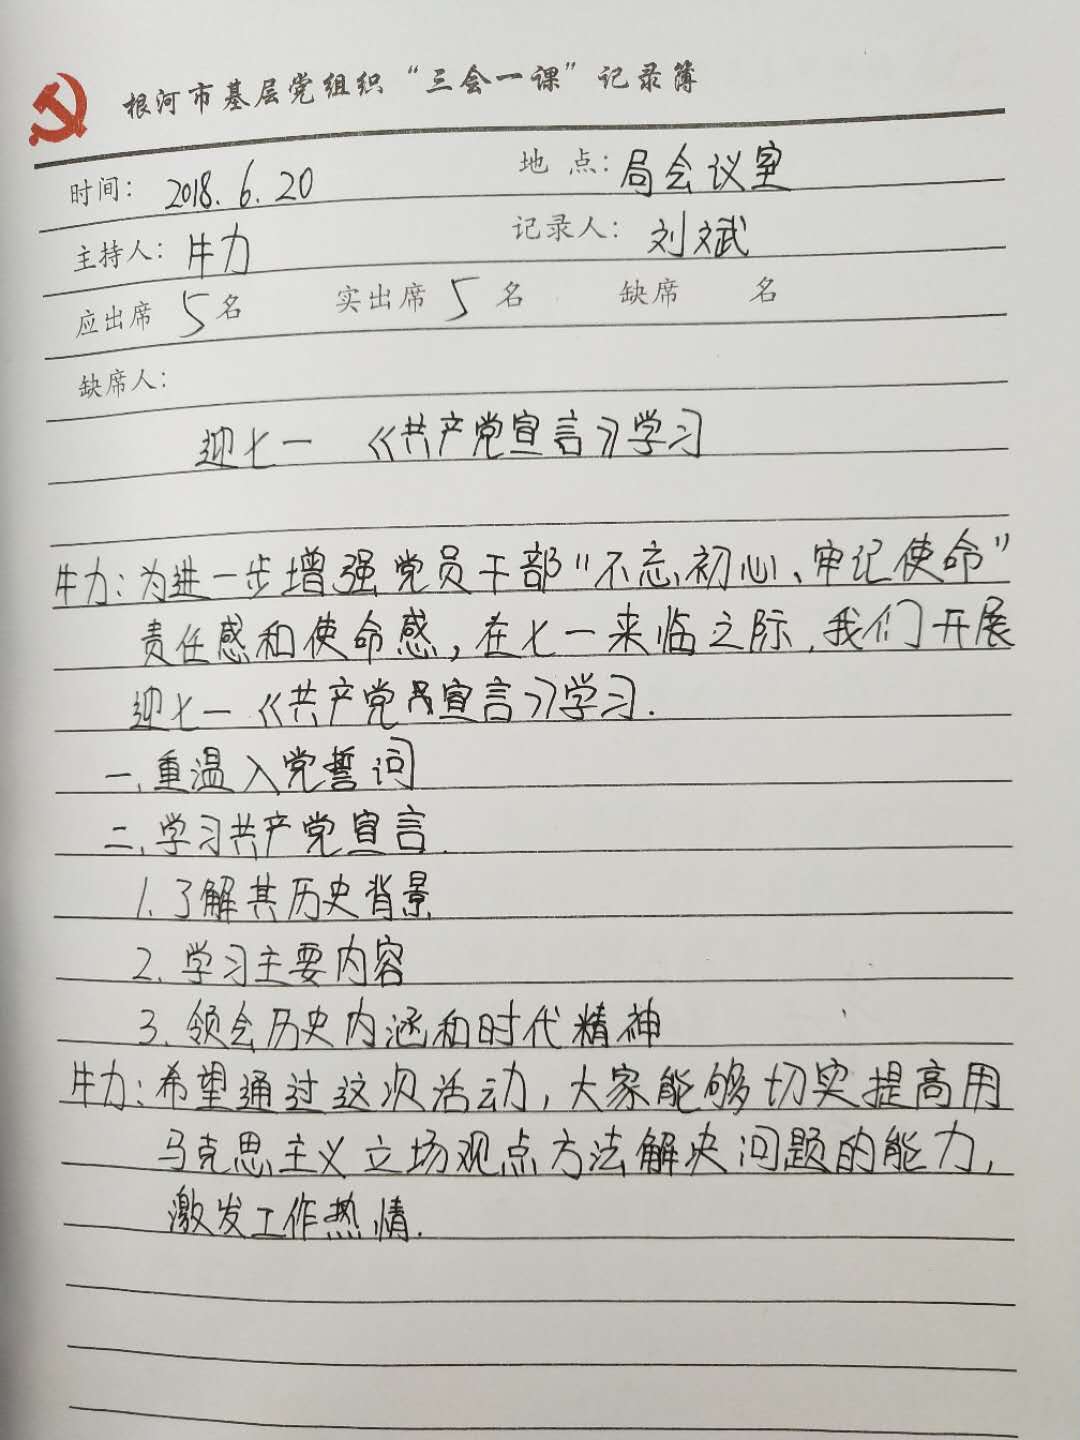 根河市基层党组织“三会一课”记录簿
时间：2018.6.20 地 点：局会议室
主持人：牛力 记录人：刘斌
应出席 5 名 实出席 5 名 缺席 名
缺席人：
迎七一 《共产党宣言》学习
牛力：为进一步增强党员干部“不忘初心、牢记使命”
责任感和使命感，在七一来临之际，我们开展
迎七一《共产党宣言》学习.
一、重温入党誓词
二、学习共产党宣言.
1.了解其历史背景
2.学习主要内容
3.领会历史内涵和时代精神
牛力：希望通过这次活动，大家能够切实提高用
马克思主义立场观点方法解决问题的能力，
激发工作热情.